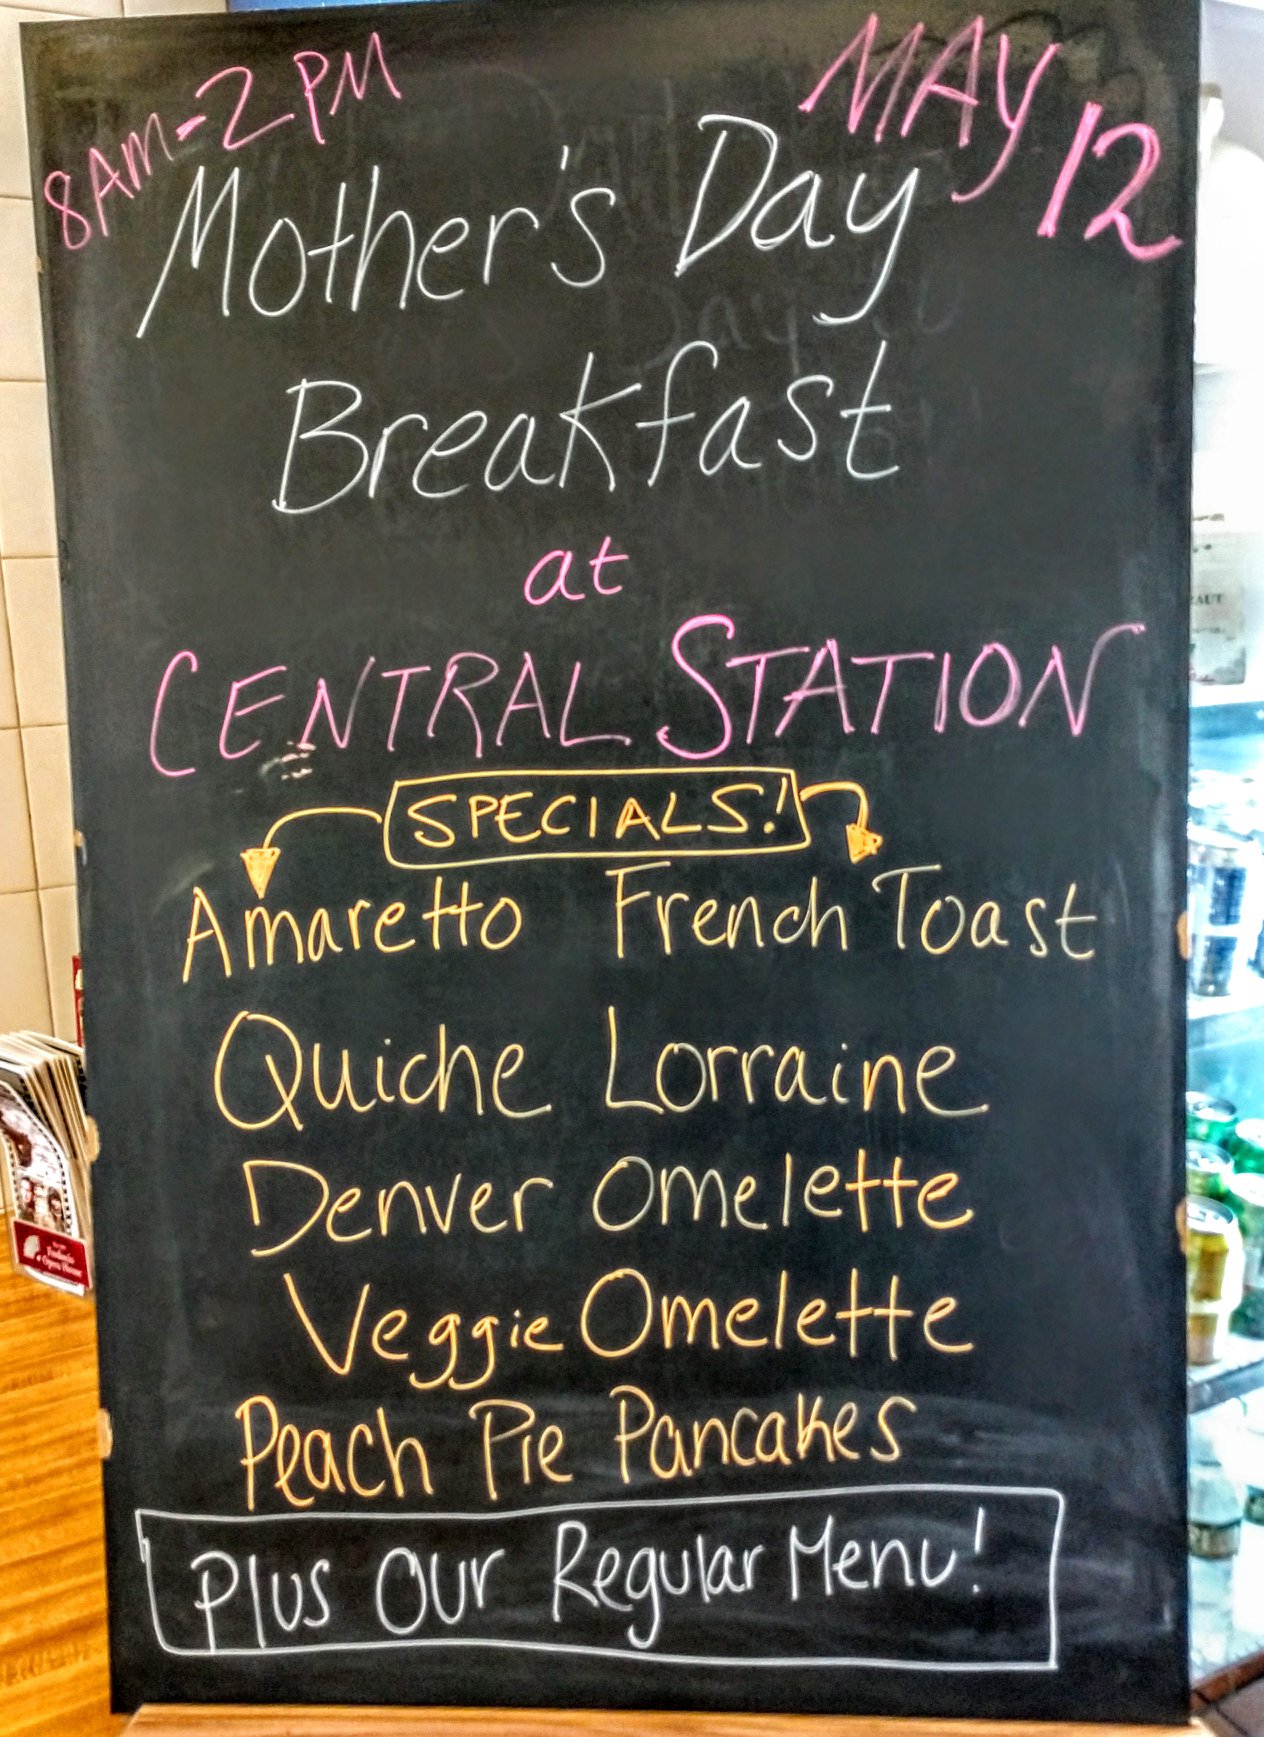 8AM-2PM
MAY 12
Mother's Day
Breakfast
at
CENTRAL STATION
SPECIALS!
Amaretto French Toast
Quiche Lorraine
Denver Omelette
Veggie Omelette
Peach Pie Pancakes
Plus Our Regular Menu!
Opera House